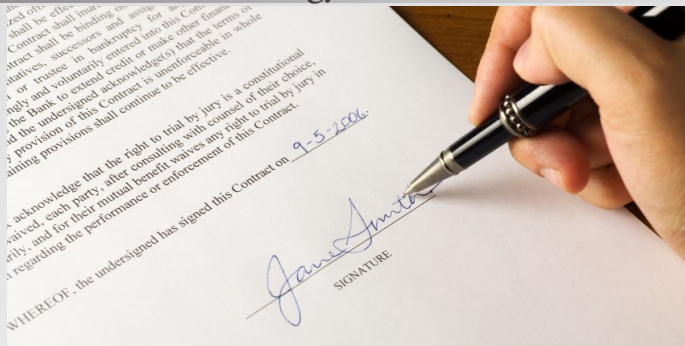 shall be
Contract shall inure
Contract shall be binding on
successors and
or trustee in bankruptcy for
and voluntarily entered into this
the Bank to extend credit or make other
the undersigned acknowledge(s) that the terms of
provision of this Contract is unenforceable in whole
provisions shall continue to be effective.
acknowledge that the right to trial by jury is a constitutional
waived, each party, after consulting with counsel of their choice,
and for their mutual benefit waives any right to trial by jury in
regarding the performance or enforcement of this Contract.
WHEREOF, the undersigned has signed this Contract on 9-5-2006.
Jane Smith
SIGNATURE